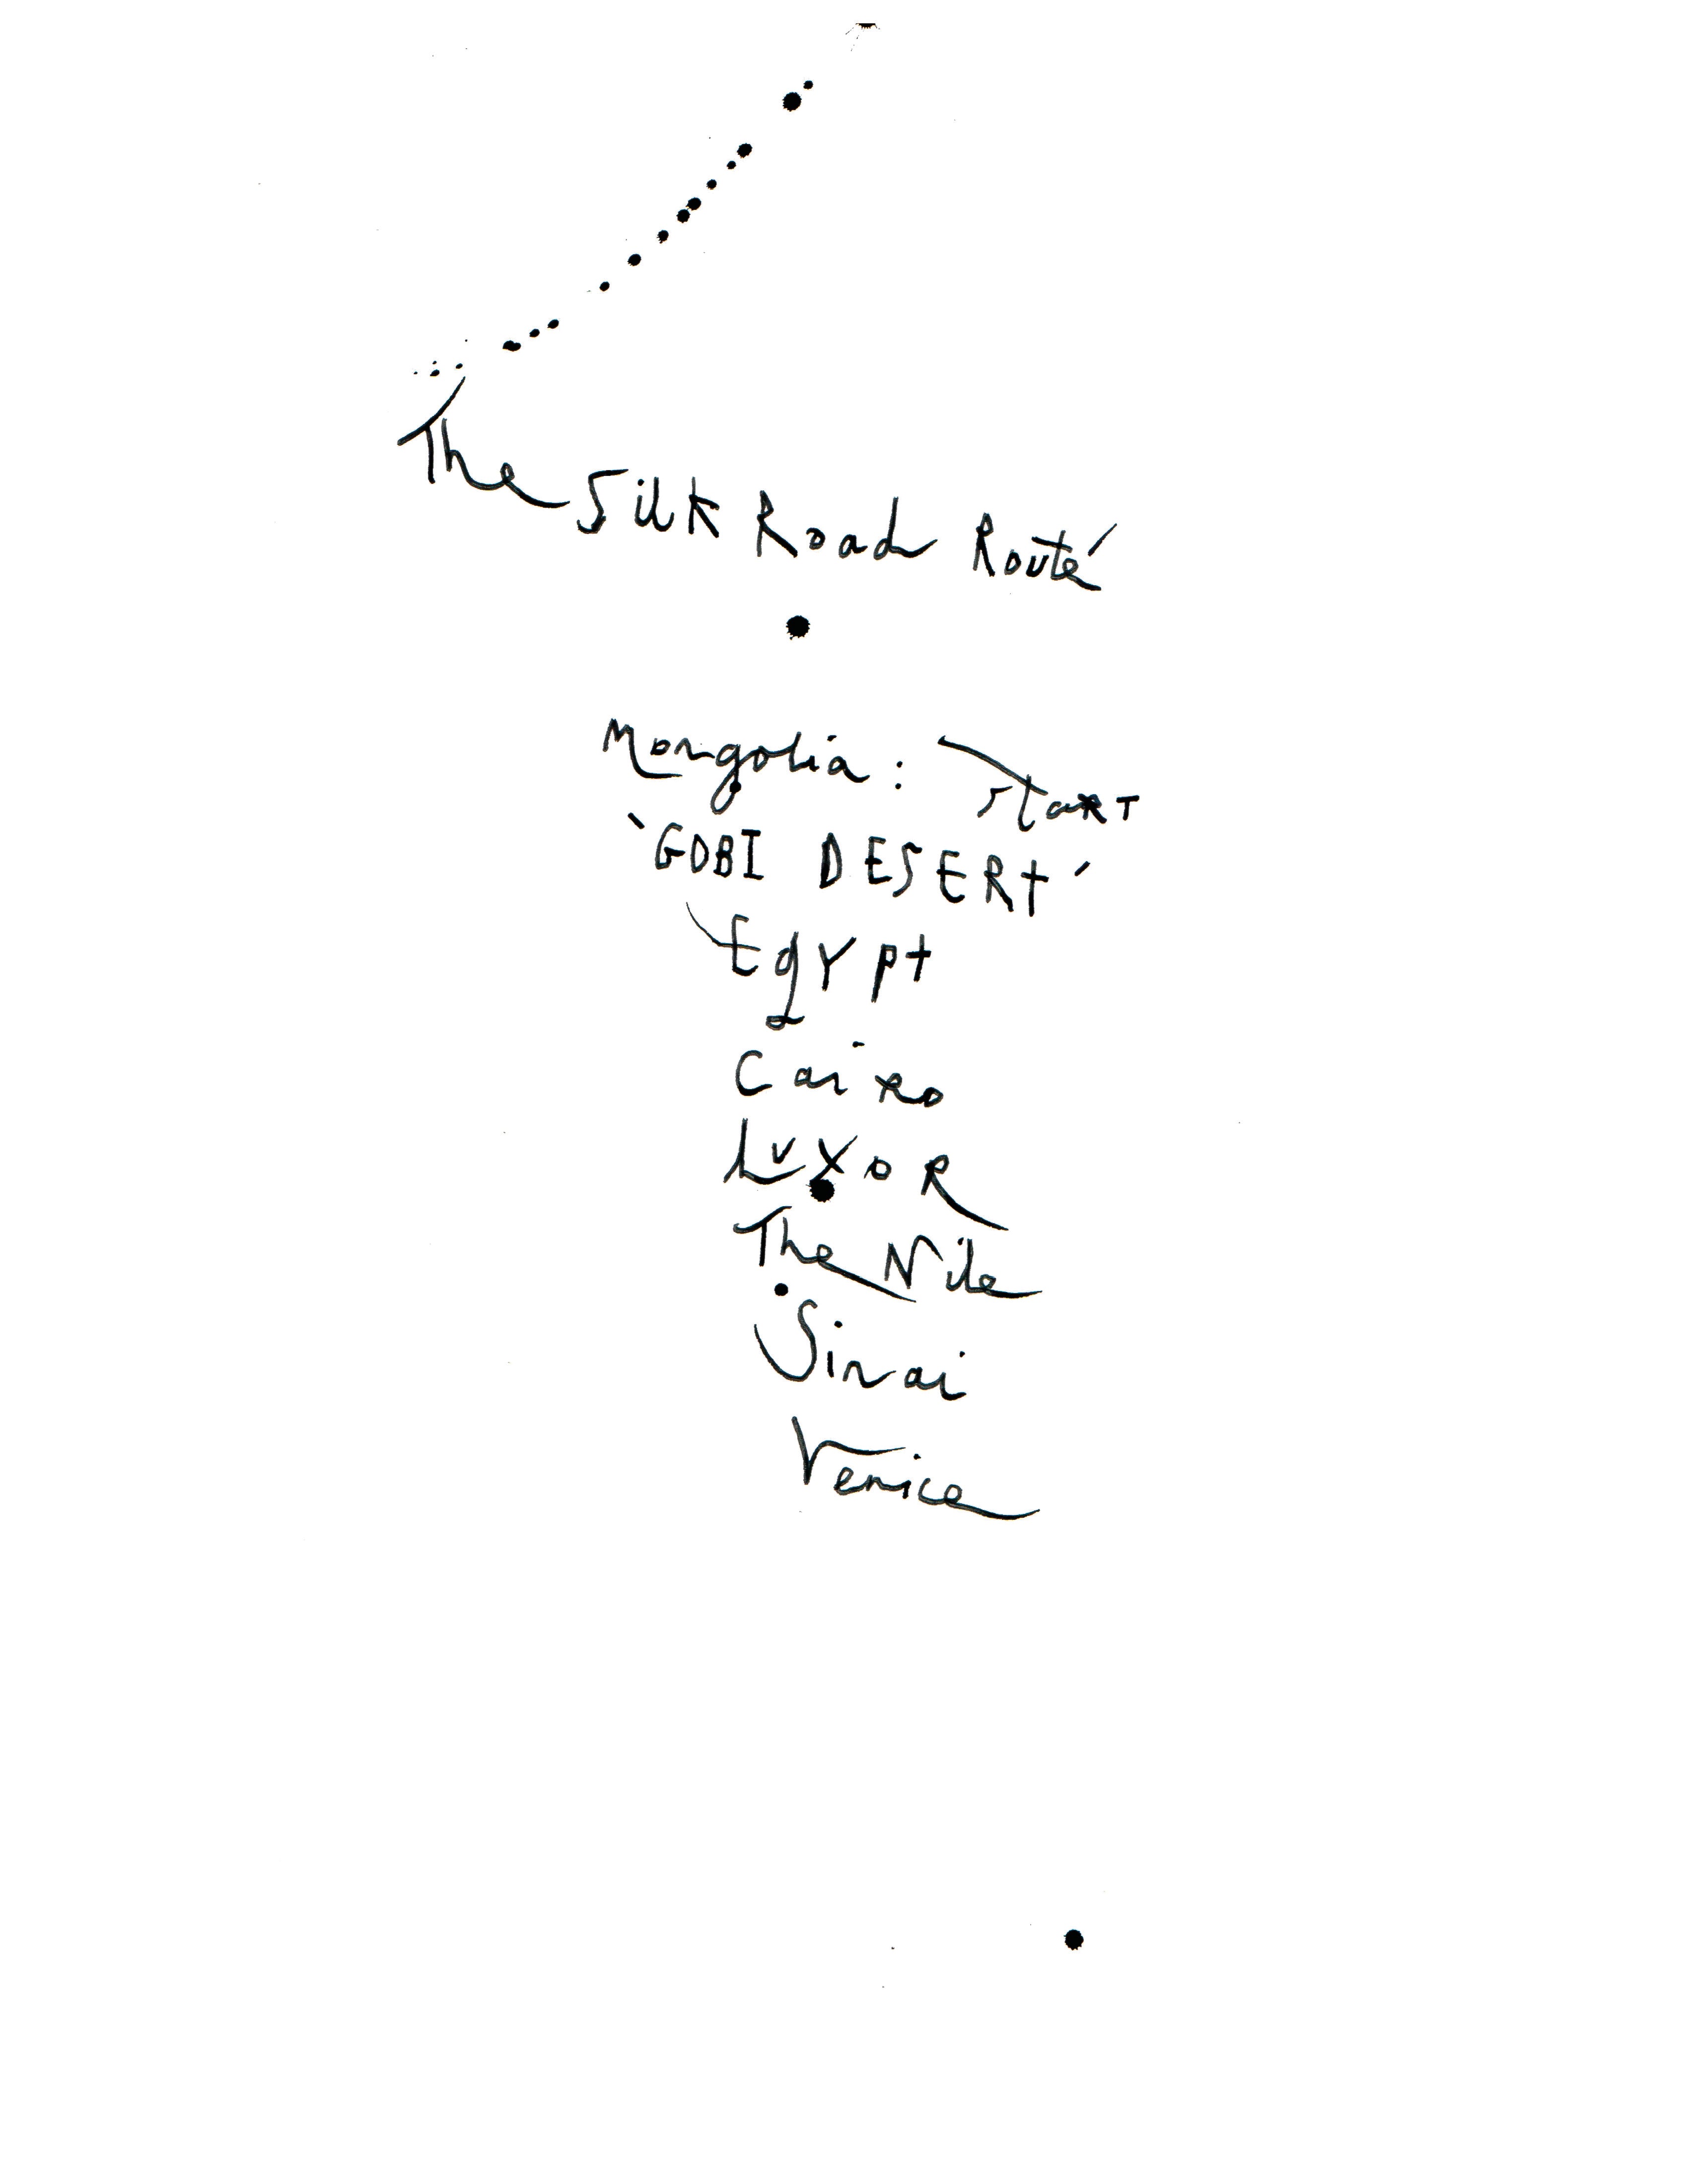 The Silk Road Routé
Mongolia: start
'GOBI DESERT'
Egypt
Cairo
LUXOR
The Nile
Sinai
Venice